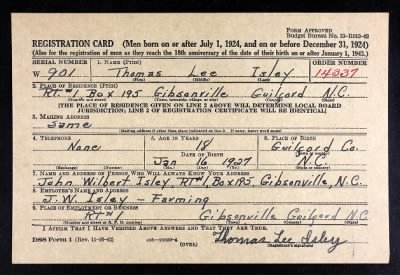 FORM APPROVED
Budget Bureau No. 33-R012-42
REGISTRATION CARD (Men born on or after July 1, 1924, and on or before December 31, 1924)
(Also for the registration of men as they reach the 18th anniversary of the date of their birth on or after January 1, 1943.)
SERIAL NUMBER 1. NAME (Print) ORDER NUMBER
W 901 Thomas Lee Isley 14237
(First) (Middle) (Last)
2. PLACE OF RESIDENCE (Print)
RT. #1, Box 195 Gibsonville Guilford N.C.
(Number and street) (Town, township, village, or city) (County) (State)
[THE PLACE OF RESIDENCE GIVEN ON LINE 2 ABOVE WILL DETERMINE LOCAL BOARD
JURISDICTION; LINE 2 OF REGISTRATION CERTIFICATE WILL BE IDENTICAL]
3. MAILING ADDRESS
Same
[Mailing address if other than place indicated on line 2. If same, insert word same]
4. TELEPHONE 5. AGE IN YEARS 6. PLACE OF BIRTH
None 18 Guilford Co.
DATE OF BIRTH (Town or county)
Jan 16 1927 N.C.
(Exchange) (Number) (Mo.) (Day) (Yr.) (State or country)
7. NAME AND ADDRESS OF PERSON WHO WILL ALWAYS KNOW YOUR ADDRESS
John Wilbert Isley RT #1, Box 195, Gibsonville, N.C.
8. EMPLOYER'S NAME AND ADDRESS
J. W. Isley - Farming
9. PLACE OF EMPLOYMENT OR BUSINESS
RT #1 Gibsonville Guilford N.C.
(Number and street or R. F. D. number) (Town) (County) (State)
I AFFIRM THAT I HAVE VERIFIED ABOVE ANSWERS AND THAT THEY ARE TRUE.
DSS Form 1 (Rev. 11-16-42) (OVER) Thomas Lee Isley